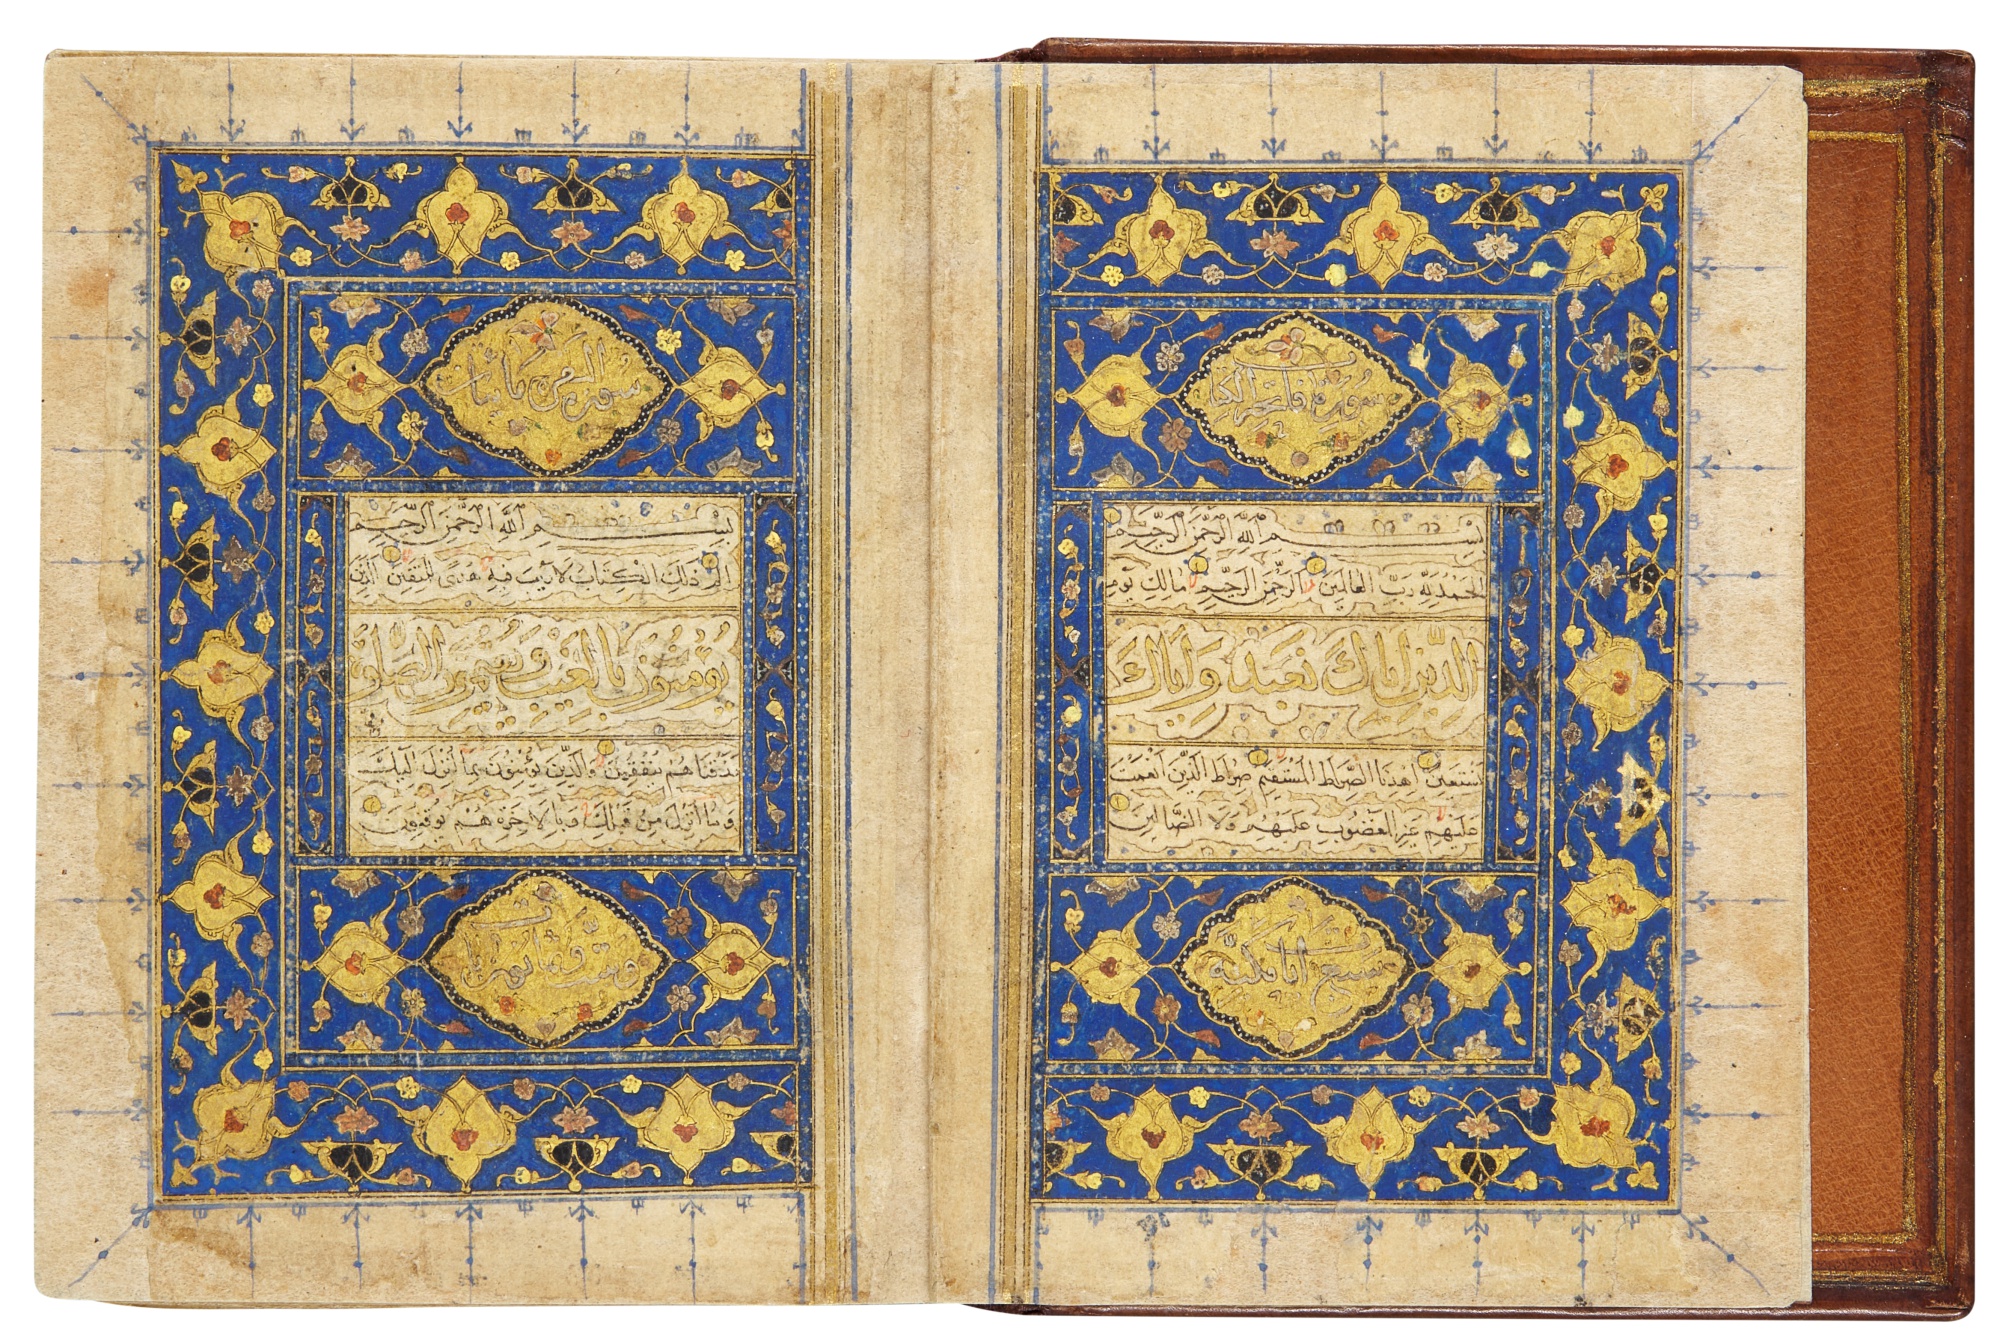 سورة فاتحة الكتاب
بسم الله الرحمن الرحيم
الحمد لله رب العالمين الرحمن الرحيم مالك يوم
الدين اياك نعبد واياك
نستعين اهدنا الصراط المستقيم صراط الذين انعمت
عليهم غير المغضوب عليهم ولا الضالين
سبع ايات مكية
سورة مايتان
بسم الله الرحمن الرحيم
الم ذلك الكتاب لا ريب فيه هدى للمتقين الذين
يؤمنون بالغيب ويقيمون الصلوة ومما
رزقناهم ينفقون والذين يؤمنون بما انزل اليك
وما انزل من قبلك وبالاخرة هم يوقنون
وست وثمانون